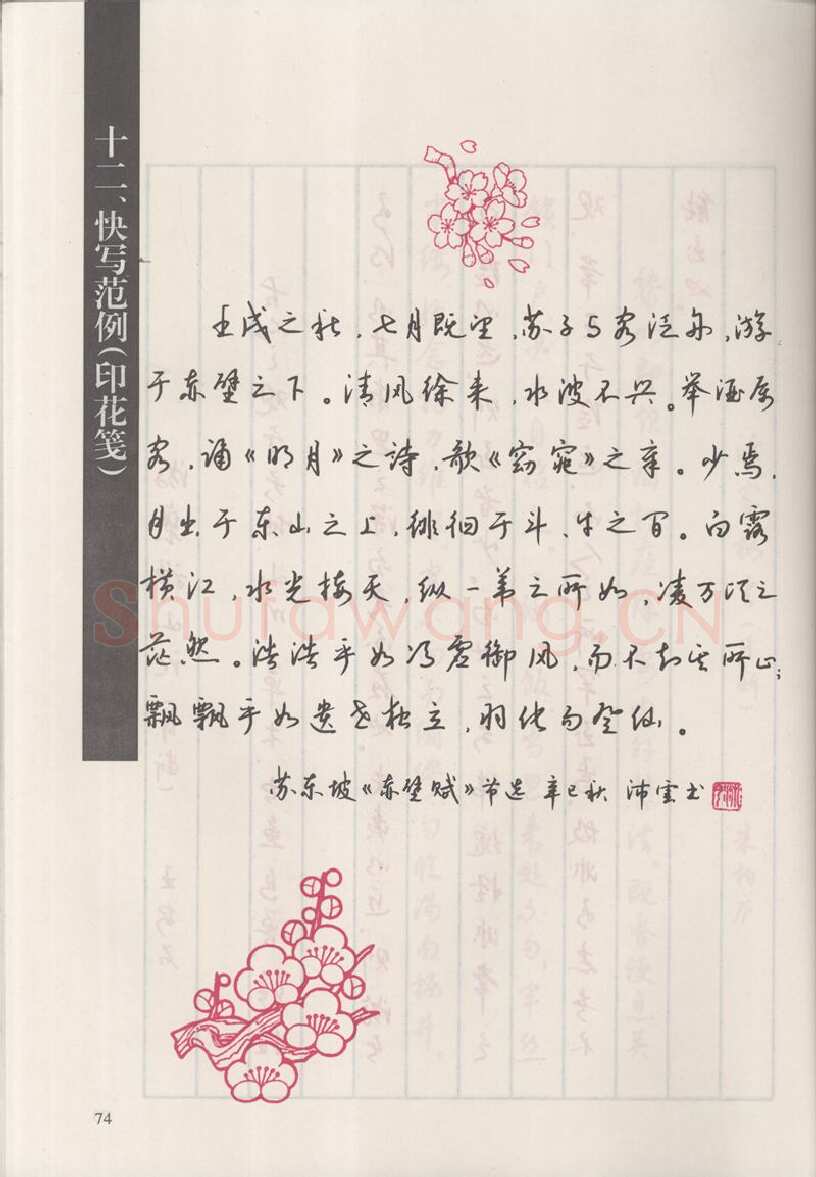 十二、快写范例(印花笺)
壬戌之秋,七月既望,苏子与客泛舟,游
于赤壁之下。清风徐来,水波不兴。举酒属
客,诵《明月》之诗,歌《窈窕》之章。少焉,
月出于东山之上,徘徊于斗、牛之间。白露
横江,水光接天,纵一苇之所如,凌万顷之
茫然。浩浩乎如冯虚御风,而不知其所止;
飘飘乎如遗世独立,羽化而登仙。
苏东坡《赤壁赋》节选 辛巳秋 沛云书
Shufawang.CN
74